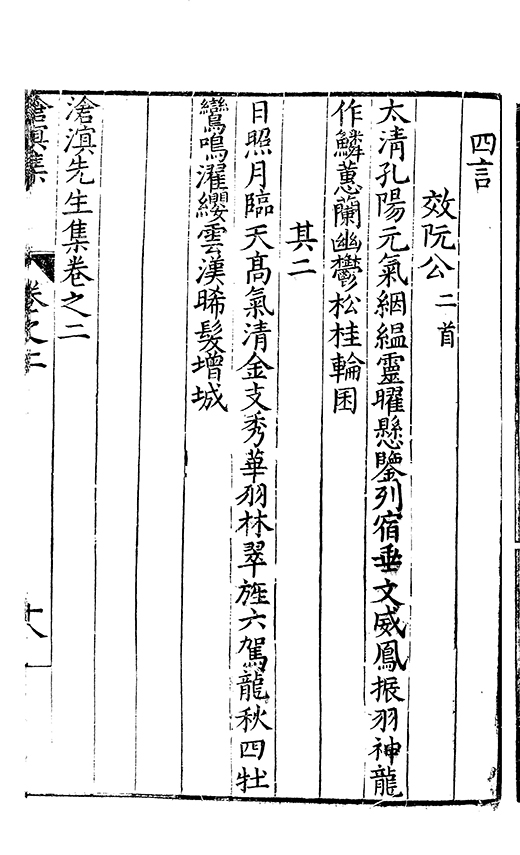 四言
效阮公二首
太清孔陽元氣絪縕靈曜懸鑒列宿垂文威鳳振羽神龍
作鱗蕙蘭幽鬱松桂輪囷
其二
日照月臨天高氣清金支秀華羽林翠旌六駕龍秋四牡
鸞鳴濯纓雲漢晞髮增城
滄溟先生集卷之二
滄溟集
卷之二
十八